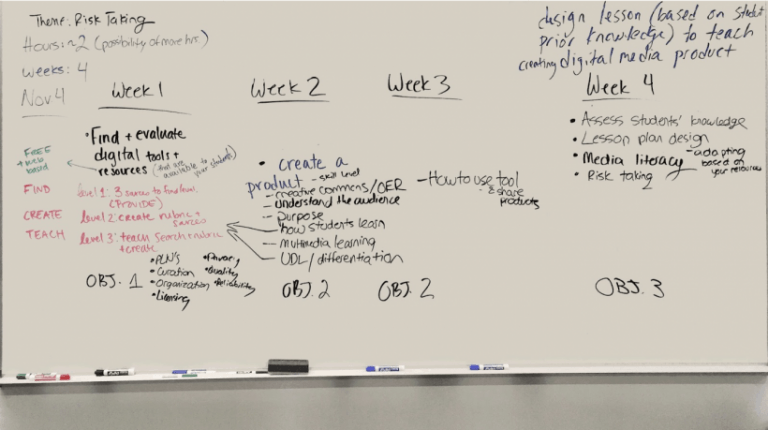 Theme: Risk Taking
Hours: ~2 (possibility of more hrs.)
Weeks: 4
Nov 4
design lesson (based on student
prior knowledge) to teach
creating digital media product
Week 1
• Find + evaluate
digital tools +
resources (that are
available to your students)
FREE
+ web
based
FIND
level 1: 3 sources to find level
(PROVIDE)
CREATE
level 2: create rubric +
sources
TEACH
level 3: teach search + rubric
+ create
• PLN's
• Curation
• Organization
• Licensing
• Privacy
• Quality
• Reliability
OBJ. 1
Week 2
• create a
product - skill level
- creative commons/OER
- understand the audience
- purpose
- how students learn
- multimedia learning
- UDL/differentiation
OBJ. 2
Week 3
- How to use tool
& share
products
OBJ. 2
Week 4
• Assess students' knowledge
• Lesson plan design
• Media literacy
• Risk taking
- adapting
based on
your resources
OBJ. 3